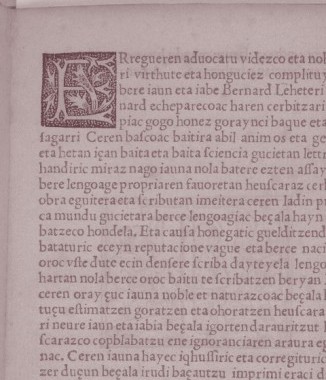 ERregueren aduocatu videzco eta nob
ri virthute eta honguciez complituy
bere iaun eta iabe Bernard Leheteri
nard echeparecoac haren cerbitzari
piac gogo honez goraynci baque eta
sagarri Ceren bascoac baitira abil animos eta ge
eta hetan içan baita eta baita sciencia gucietan lettr
handiric miraz nago iauna nola batere ezten assay
bere lengoage propriaren fauoretan heuscaraz cer
obra eguitera eta scributan imeitera ceren ladin p
ca mundu gucietara berce lengoagiac beçala hayn
batzeco hondela. Eta causa honegatic guelditzen d
bataturic eceyn reputacione vague eta berce naci
oroc vste dute ecin densere scriba dayteyela lengo
hartan nola berce oroc baitu te scribatzen beryan
ceren oray çuc iauna noble et naturazcoac beçala
tuçu estimatzen goratzen eta ohoratzen heuscara
ri neure iaun eta iabia beçala igorten darauritzut
scarazco copblabatzu ene ignoranciaren araura eg
nac. Ceren iauna hayec iqhussiric eta corregituric
zer duçun beçala irudi baçautzu imprimi eraci d